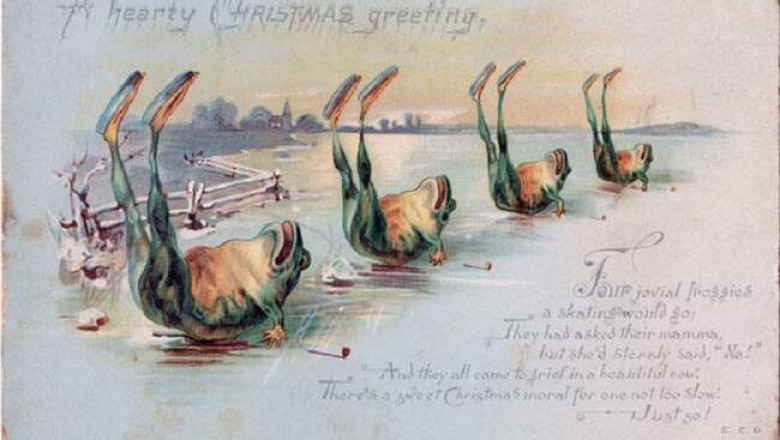 A hearty CHRISTMAS greeting.
Four jovial froggies
a skating would go;
They had asked their mamma,
but she'd sternly said, "No!"
And they all came to grief in a beautiful row.
There's a sweet Christmas moral for one not too slow.
Just so!
E. E. G